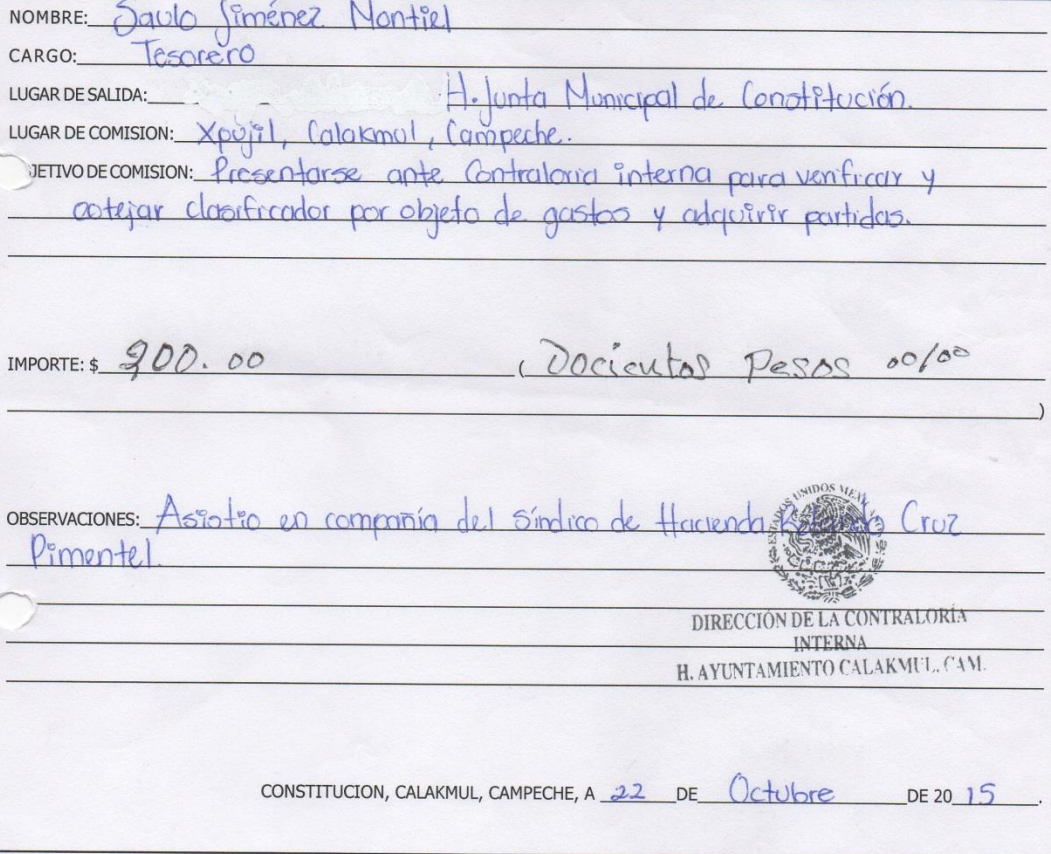 NOMBRE: Saulo Jiménez Montiel
CARGO: Tesorero
LUGAR DE SALIDA: H. Junta Municipal de Constitución.
LUGAR DE COMISION: Xpújil, Calakmul, Campeche.
JETIVO DE COMISION: Presentarse ante Contraloria interna para verificar y
cotejar clasificador por objeto de gastos y adquirir partidas.
IMPORTE: $ 200.00 ( Docicutos Pesos 00/00
)
OBSERVACIONES: Asistio en compañía del síndico de Hacienda Cruz
Pimentel.
ESTADOS UNIDOS MEXICANOS
DIRECCIÓN DE LA CONTRALORÍA
INTERNA
H. AYUNTAMIENTO CALAKMUL, CAM.
CONSTITUCION, CALAKMUL, CAMPECHE, A 22 DE Octubre DE 20 15.